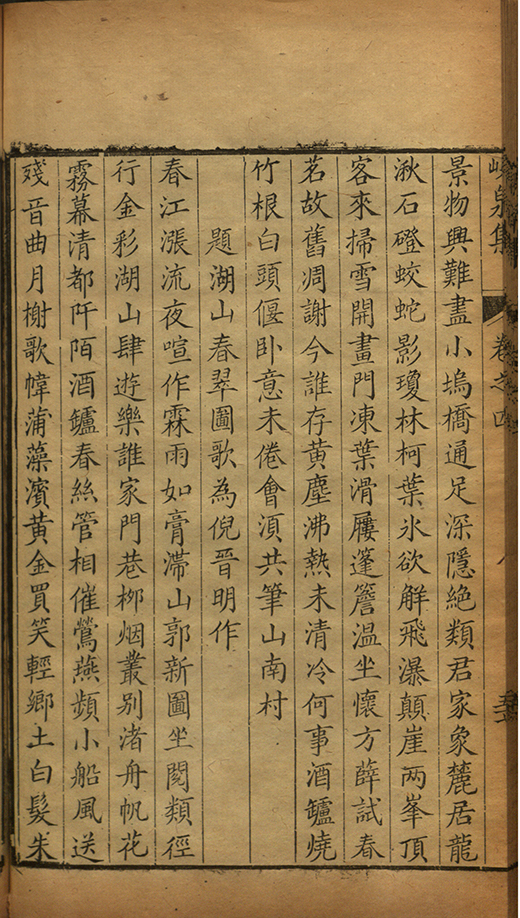 峴泉集 卷之四
景物興難盡小塢橋通足深隱絶類君家象麓居龍
湫石磴蛟蛇影瓊林柯葉氷欲解飛瀑顛崖两峯頂
客來掃雪開畫門凍葉滑屨蓬簷温坐懷方薛試春
茗故舊凋謝今誰存黄塵沸熱未清冷何事酒罏燒
竹根白頭偃卧意未倦會湏共筆山南村
題湖山春翠圖歌為倪晉明作
春江漲流夜喧作霖雨如膏滞山郭新圖坐閱類徑
行金彩湖山肆遊樂誰家門巷栁烟叢别渚舟帆花
霧幕清都阡陌酒罏春絲管相催鶯燕頻小船風送
殘音曲月榭歌幃蒲藻濱黄金買笑輕鄉土白髮朱